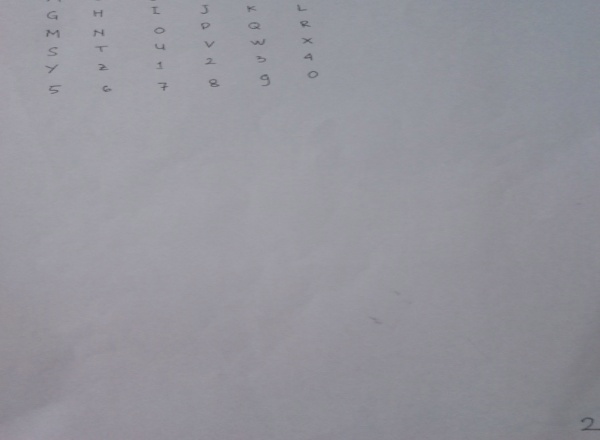 G H I J K L
M N O P Q R
S T U V W X
Y Z 1 2 3 4
5 6 7 8 9 0
2